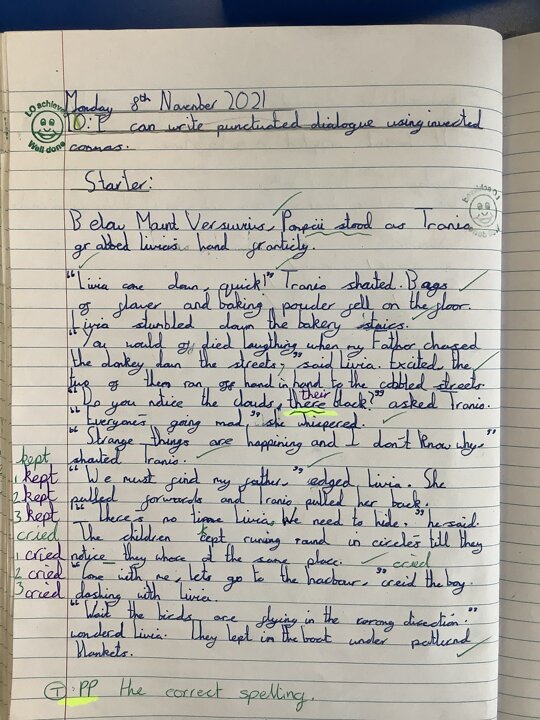 LO achieved
Well done
Monday 8th November 2021
LO: I can write punctuated dialogue using inverted
commas.
Starter:
Below Mount Versuvius, Pompeii stood as Tranio
grabbed livia's hand franticly.
"Livia come down, quick!" Tranio shouted. Bags
of flower and baking powder fell on the floor.
Livia stumbled down the bakery staics.
"You would of died laughing when my Father chased
the donkey down the streets," said Livia. Excited, the
two of them ran of hand in hand to the cobbled streets.
their
"Do you notice the clouds, there black?" asked Tranio.
"Everyone's going mad," she whispered.
"Strange things are happining and I don't know why"
kept
shouted Tranio.
1 kept
"We must find my father," edged Livia. She
2 kept
pulled forwards and Tranio pulled her back.
3 kept
"There's no time Livia, We need to hide." he said.
cried
The children kept runing round in circles till they
1 cried
notice they where at the same place. cried
2 cried
"Come with me, lets go to the harbour," creid the boy
3 cried
dashing with Livia.
"Wait the birds are flying in the wrong direction."
wonderd Livia. They lept in the boat under patterned
blankets.
T: PP the correct spelling.